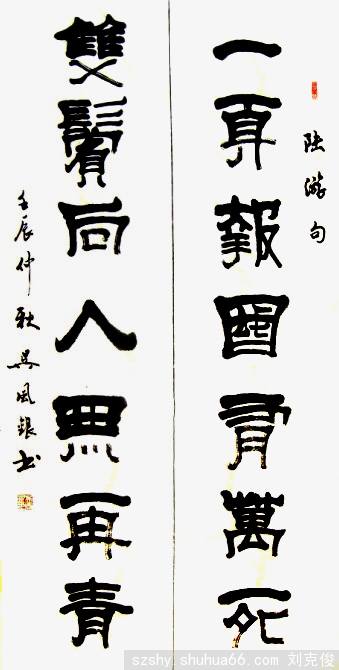 陸游句
一身報國有萬死
雙鬢向人無再青
壬辰仲秋吳風銀書
szshy.shuhua66.com 刘克俊